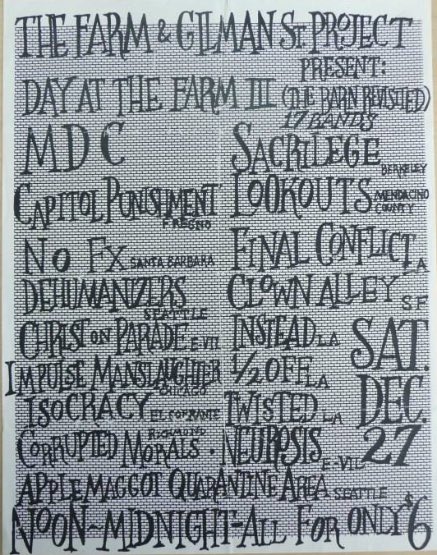 THE FARM & GILMAN ST. PROJECT
PRESENT:
DAY AT THE FARM III (THE BARN REVISITED)
17 BANDS
MDC
SACRILEGE BERKELEY
CAPITOL PUNISHMENT FRESNO
LOOKOUTS MENDACINO COUNTY
NO FX SANTA BARBARA
FINAL CONFLICT LA
DEHUMANIZERS SEATTLE
CLOWN ALLEY SF
CHRIST ON PARADE E-VILL
INSTEAD LA
IMPULSE MANSLAUGHTER CHICAGO
1/2 OFF LA
ISOCRACY EL SOBRANTE
TWISTED LA
CORRUPTED MORALS RICHMOND
NEUROSIS E-VILL
SAT. DEC. 27
APPLE MAGGOT QUARANTINE AREA SEATTLE
NOON-MIDNIGHT-ALL FOR ONLY $6